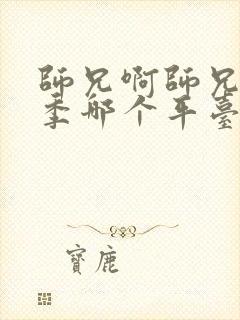 師兄啊師兄
季那个平臺
寶鹿